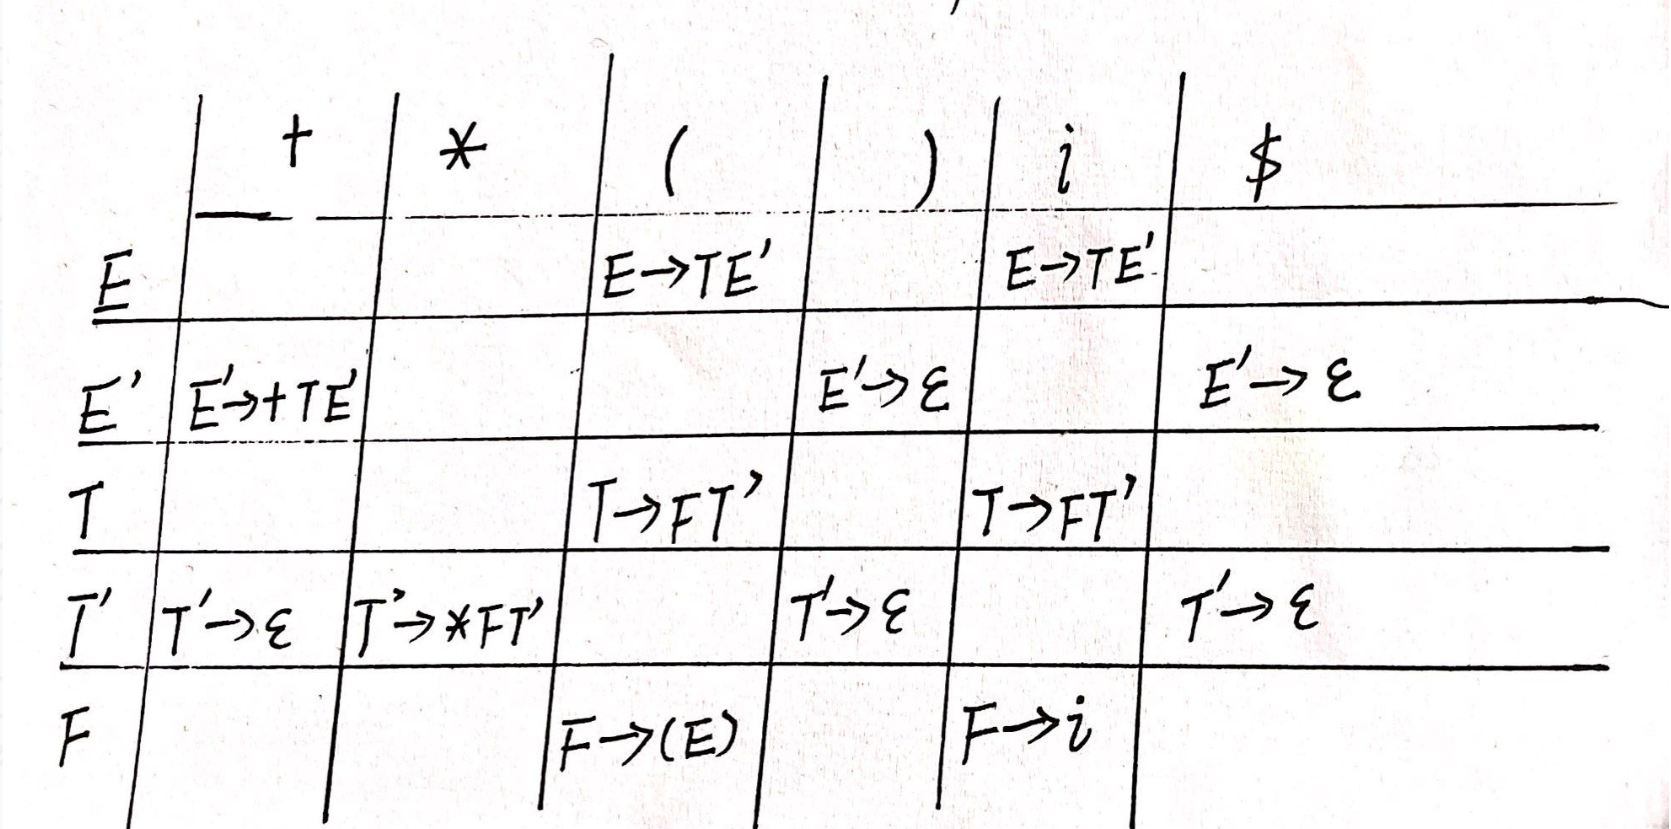 + * ( ) i $
E E→TE' E→TE'
E' E'→+TE' E'→ε E'→ε
T T→FT' T→FT'
T' T'→ε T'→*FT' T'→ε T'→ε
F F→(E) F→i